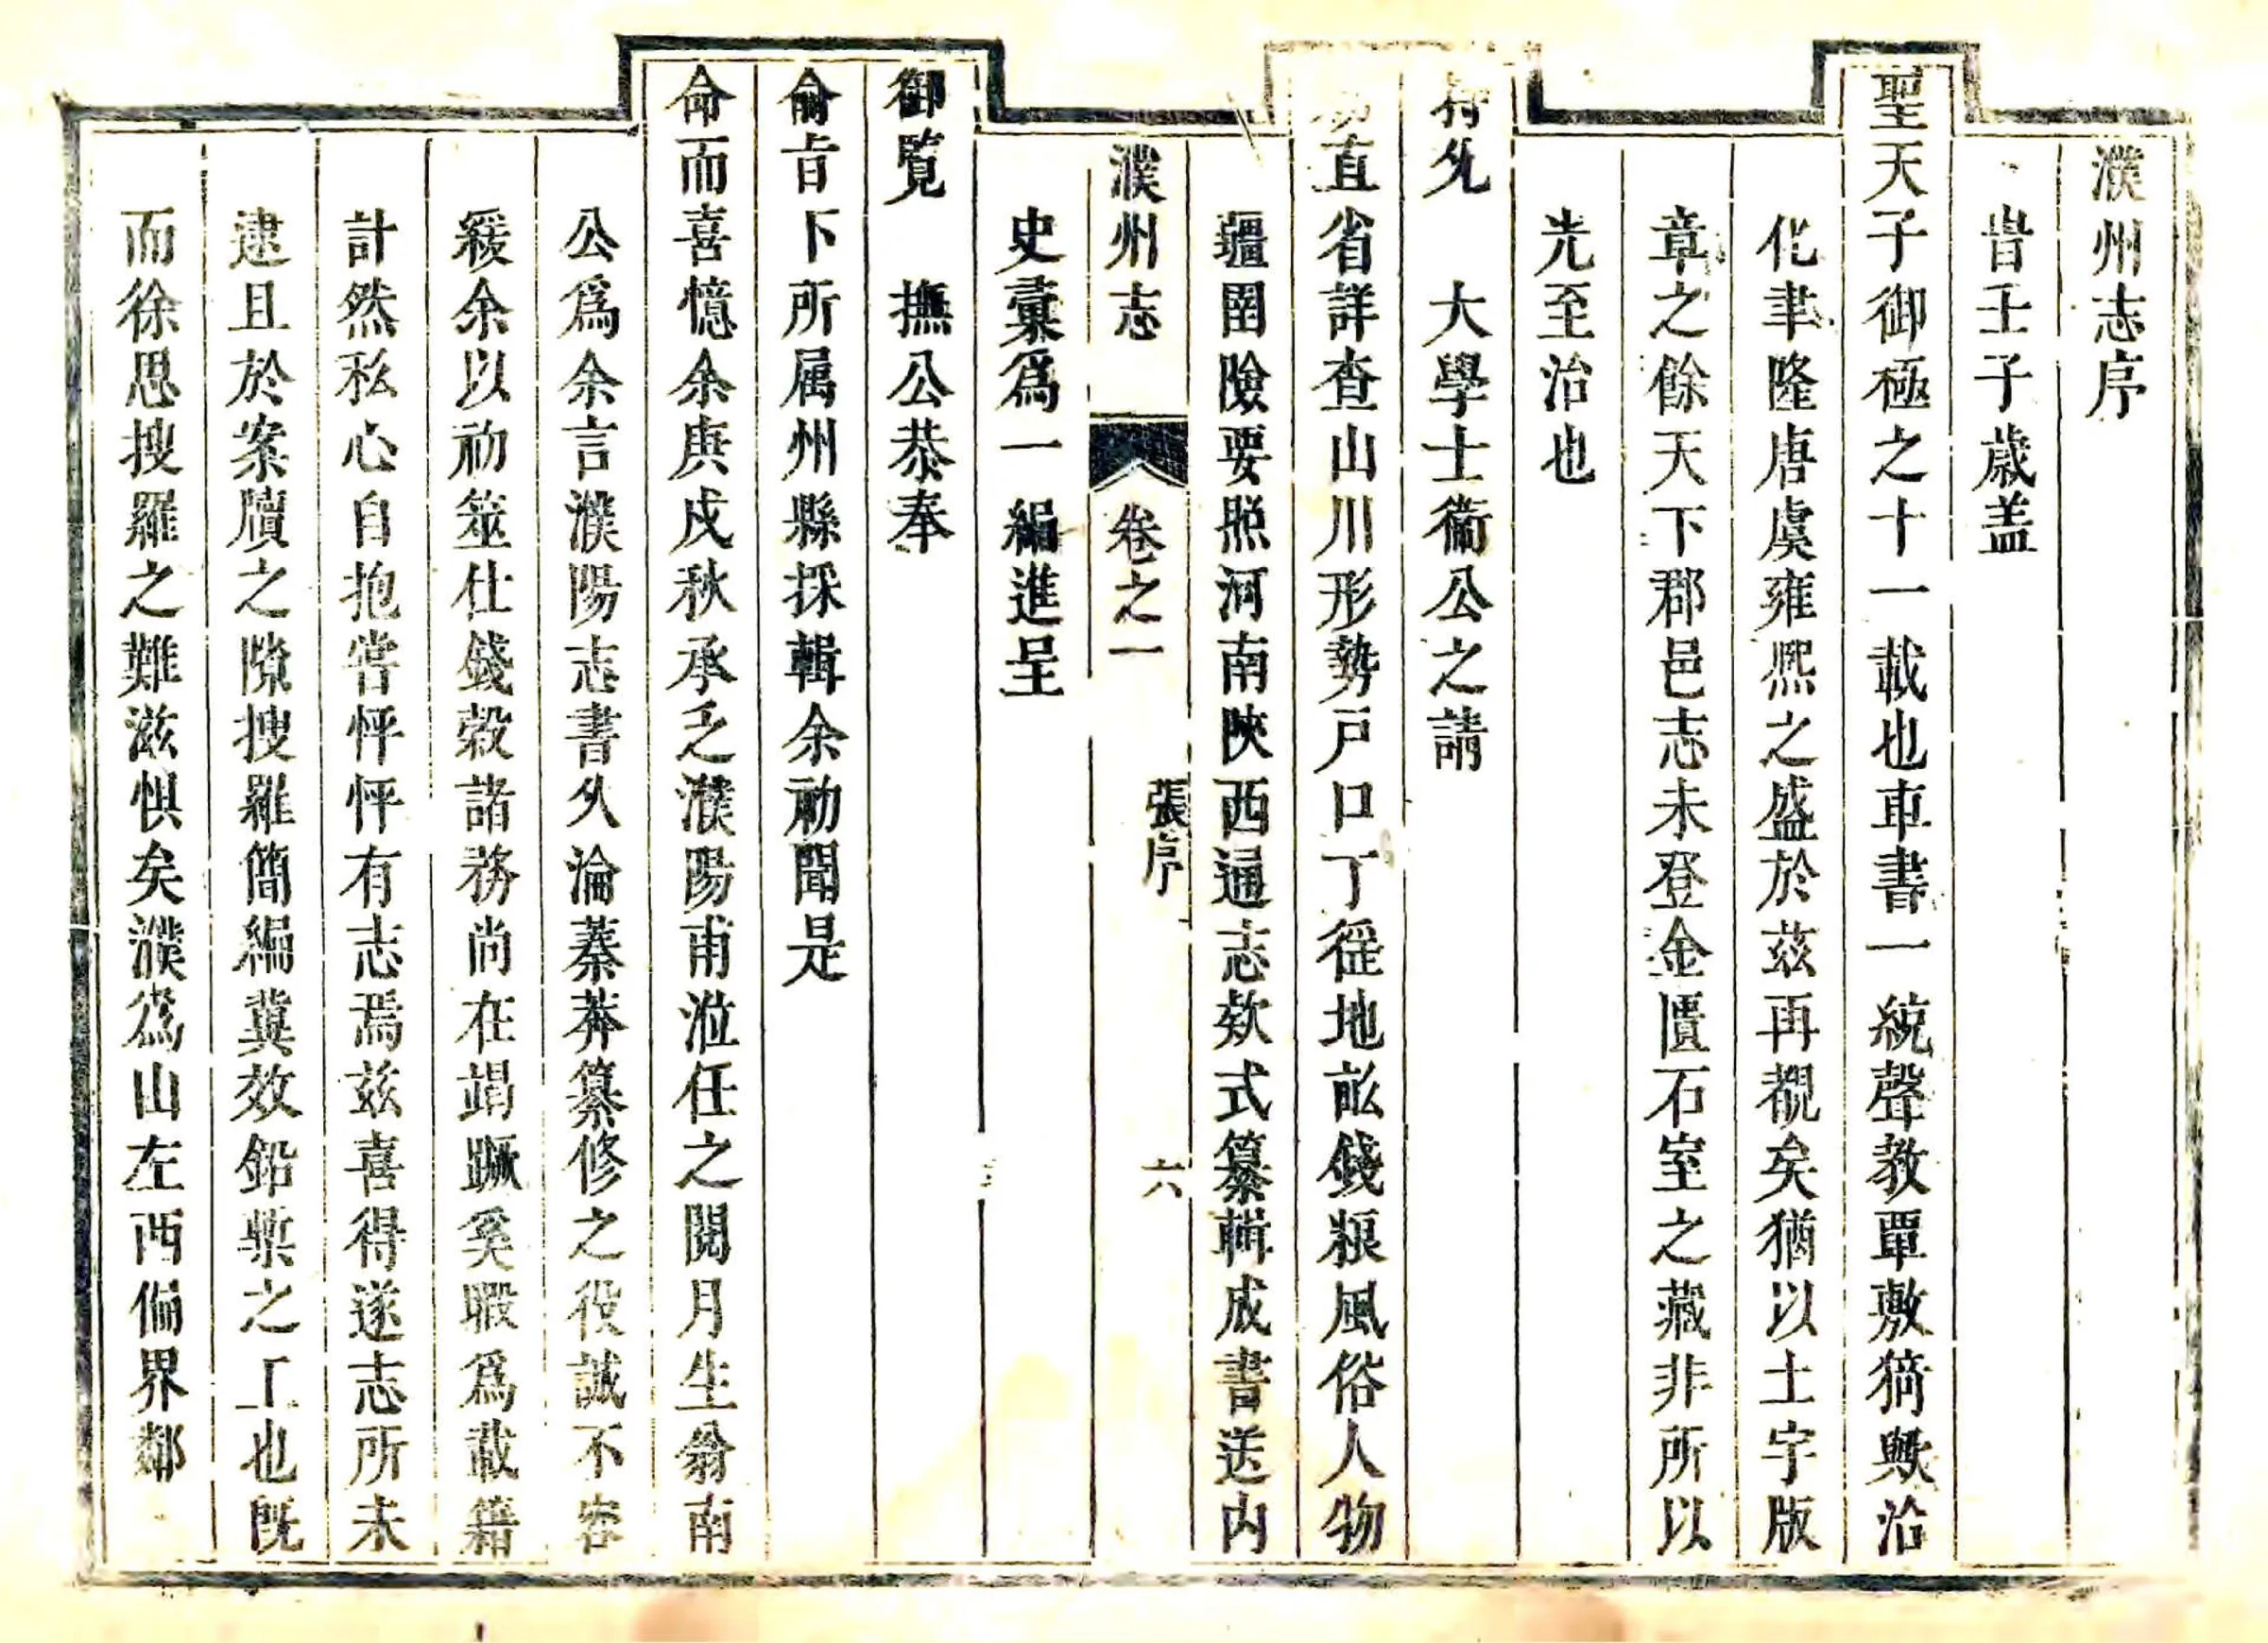 濮州志序
昔壬子歲盖
聖天子御極之十一載也車書一統聲教覃敷猗歟治
化聿隆唐虞雍熙之盛於兹再覩矣猶以土宇版
章之餘天下郡邑志未登金匱石室之藏非所以
光至治也
大學士衞公之請
直省詳查山川形勢戸口丁徭地畝錢粮風俗人物
疆圉險要照河南陜西通志欵式纂輯成書送内
濮州志
卷之一
張序
六
史彙爲一編進呈
御覽 撫公恭奉
俞旨下所属州縣採輯余初聞是
命而喜憶余庚戍秋承乏濮陽甫涖任之閱月生翁南
公爲余言濮陽志書乆淪蓁莽纂修之役誠不容
緩余以初筮仕錢穀諸務尚在竭蹶奚暇爲載籍
計然私心自抱嘗怦怦有志焉兹喜得遂志所未
逮且於案牘之隙搜羅簡編冀效鉛槧之工也既
而徐思搜羅之難滋惧矣濮爲山左西偏界鄰